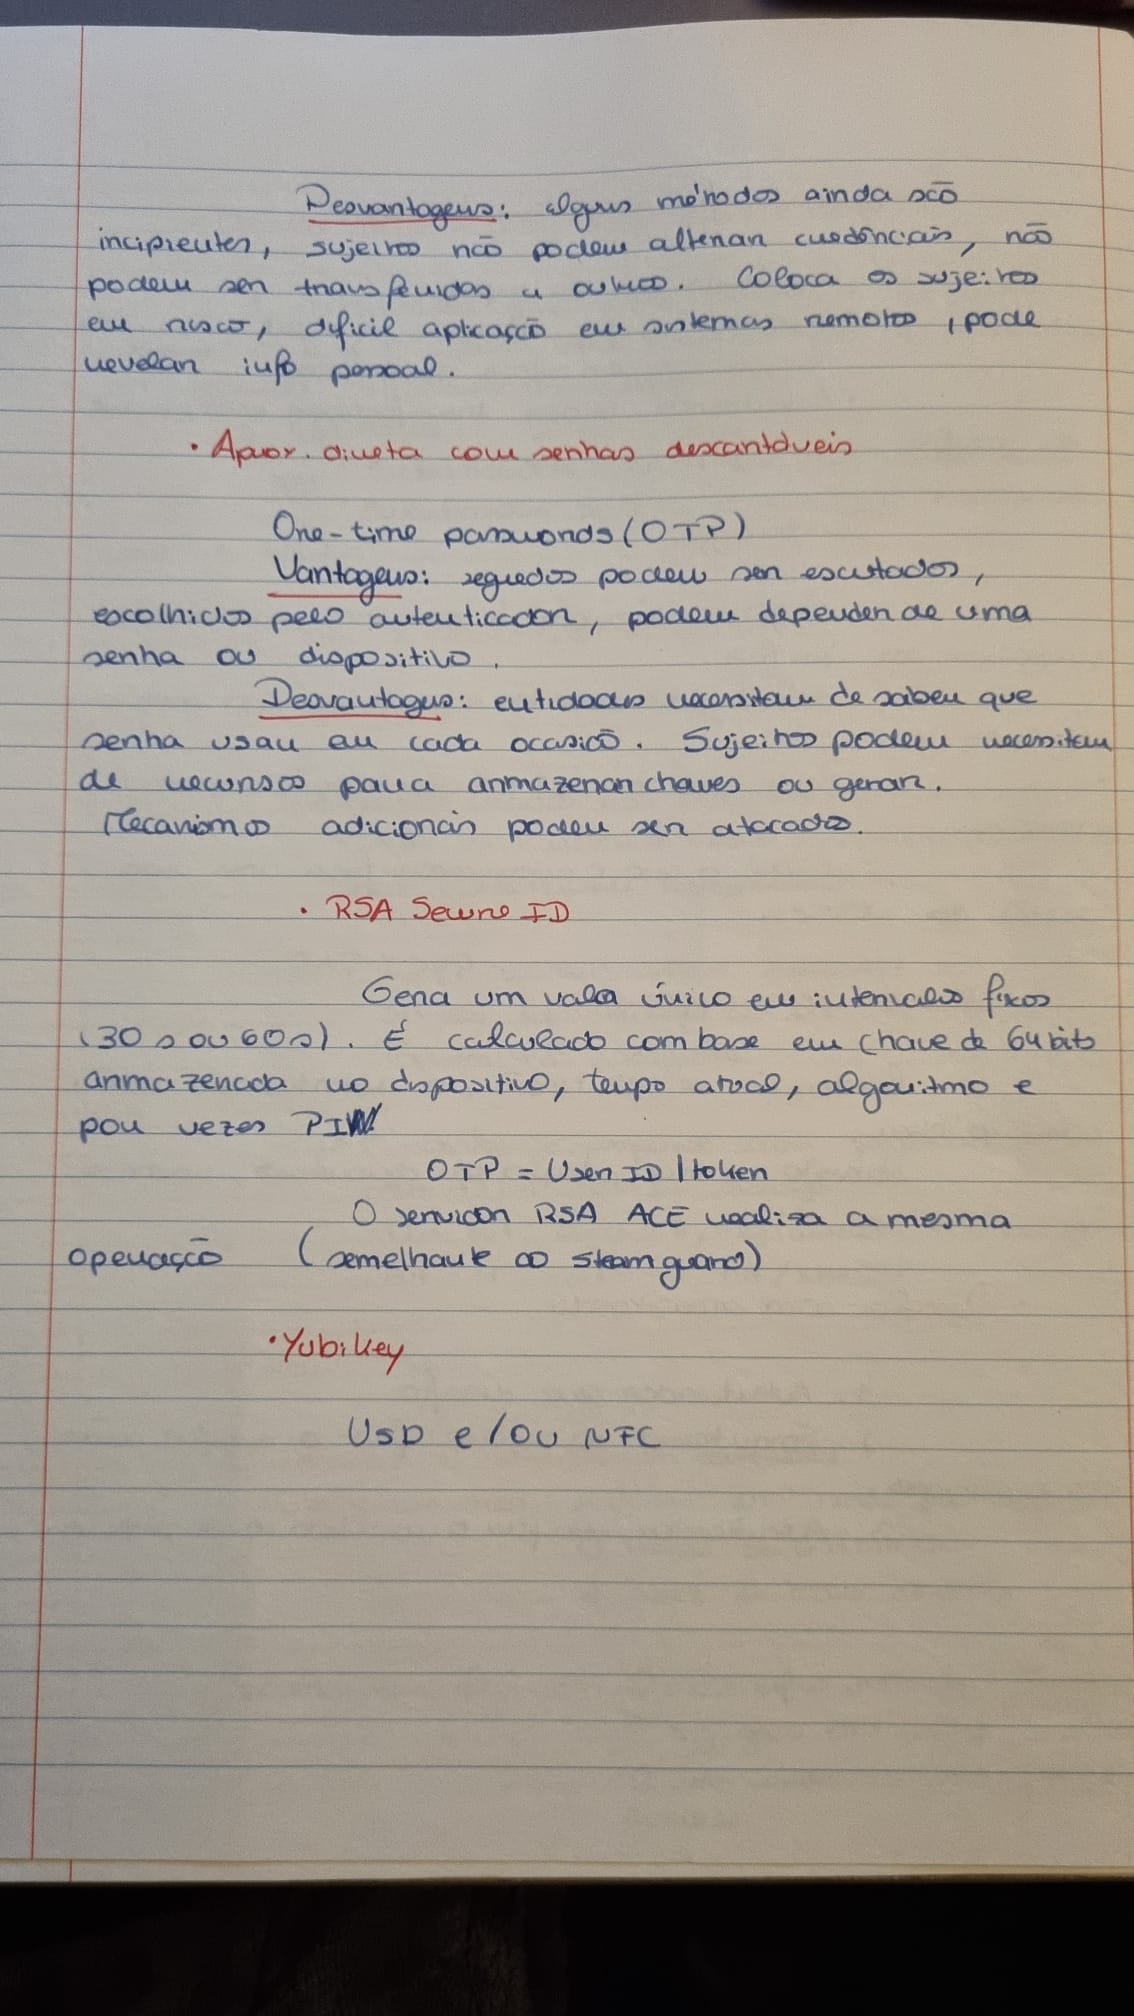 Desvantagens: alguns métodos ainda são
incipientes, sujeitos não podem alterar credênciais, não
podem ser transferidas a outros. Coloca os sujeitos
em risco, dificil aplicação em sistemas remotos, pode
revelar info pessoal.
· Aprox. direta com senhas descartáveis
One-time passwords (OTP)
Vantagens: segredos podem ser escutados,
escolhidos pelo autenticador, podem depender de uma
senha ou dispositivo.
Desvantagens: entidades necessitam de saber que
senha usar em cada ocasião. Sujeitos podem necessitem
de recursos para armazenar chaves ou gerar.
Mecanismos adicionais podem ser atacados.
· RSA Secure ID
Gera um valor único em intervalos fixos
(30s ou 60s). É calculado com base em chave de 64 bits
armazenada no dispositivo, tempo atual, algoritmo e
por vezes PIN
OTP = User ID | token
O servidor RSA ACE realiza a mesma
operação (semelhante ao steam guard)
· Yubikey
USB e/ou NFC